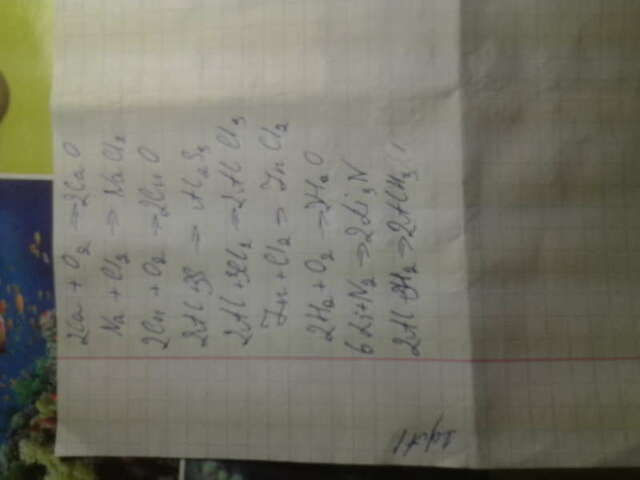 2Ca + O2 → 2CaO
Na + Cl2 → NaCl2
2Cu + O2 → 2CuO
2Al 3S → Al2S3
2Al + 3Cl2 → 2AlCl3
Zn + Cl2 → ZnCl2
2H2 + O2 → 2H2O
6Li + N2 → 2Li3N
2Al + 3H2 → 2AlH3